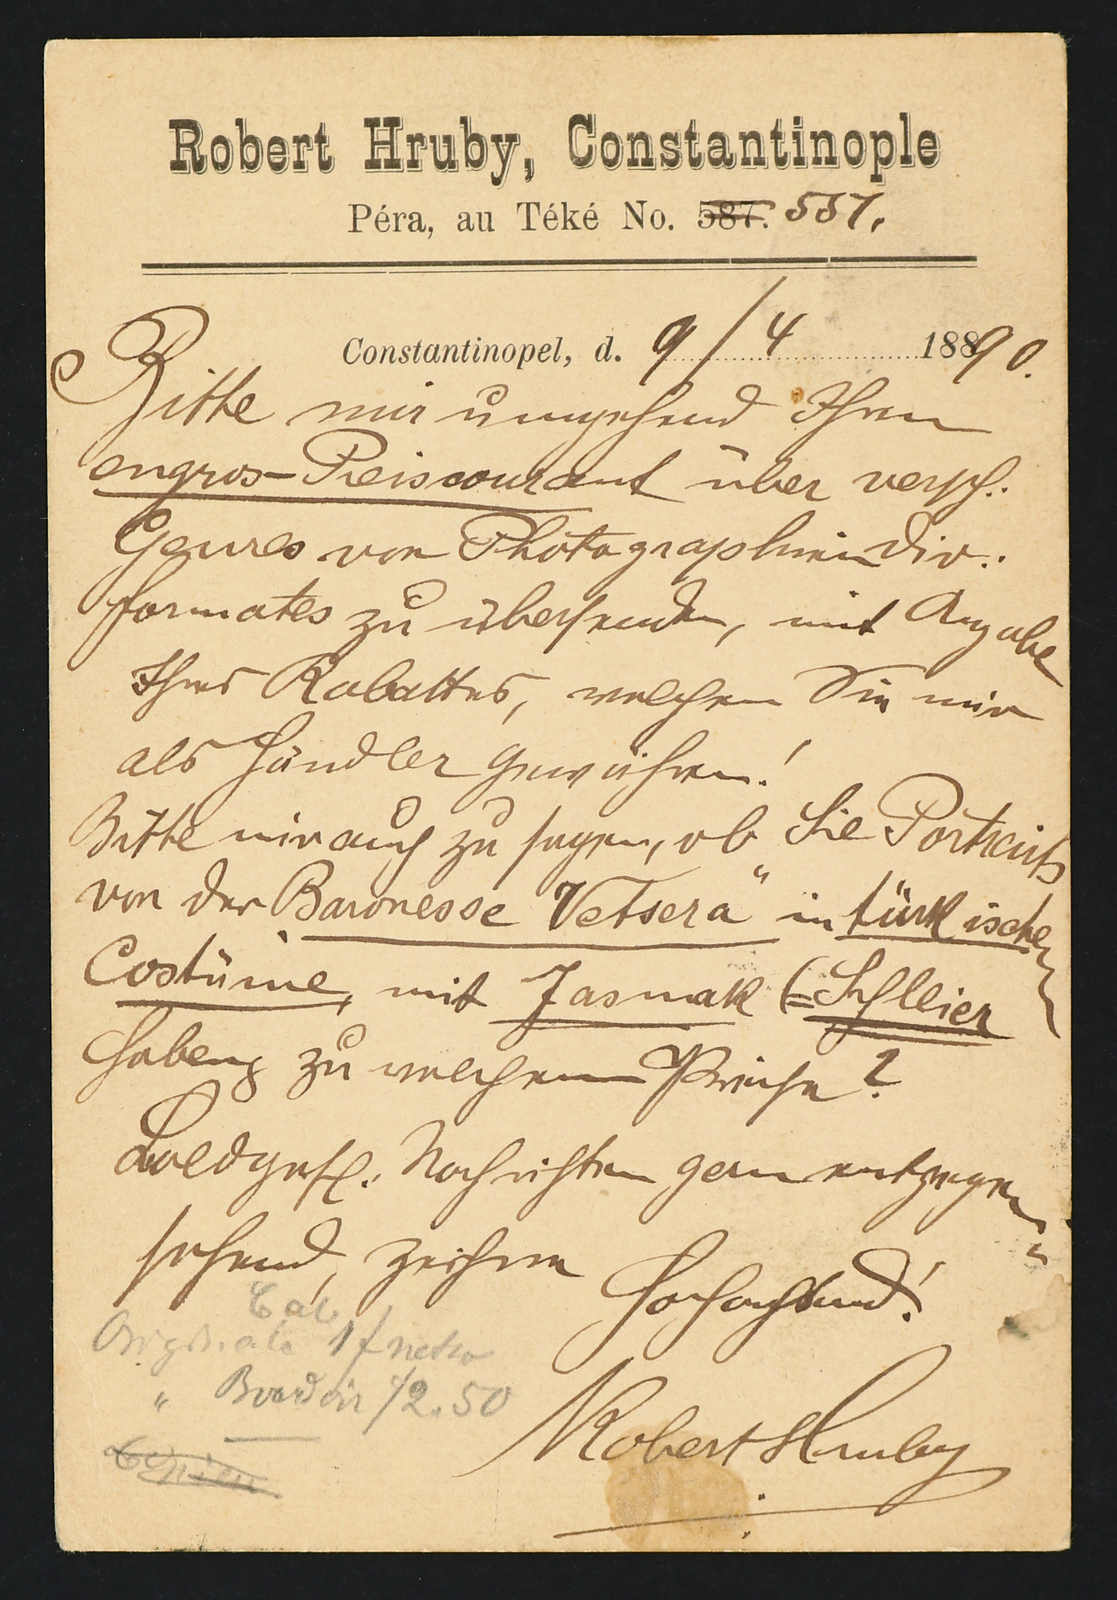 Robert Hruby, Constantinople
Péra, au Téké No. 587. 557.
Constantinopel, d. 9/4 18890.
Bitte mir umgehend Ihren
engros-Preiscourant über versch.
Genres von Photographien div.
formates zu übersenden, mit Angabe
Ihres Rabattes, welchen Sie mir
als Händler gewähren!
Bitte mir auch zu sagen, ob Sie Portraits
von der Baronesse "Vetsera" in türkischem
Costüme, mit Jasmak (=Schleier
haben, zu welchem Preise?
Baldgefl. Nachrichten gern entgegen
sehend, zeichne
Hochachtend!
Cab.
Originale 1 f netto
" Boudoir f 2.50
Copien
Robert Hruby